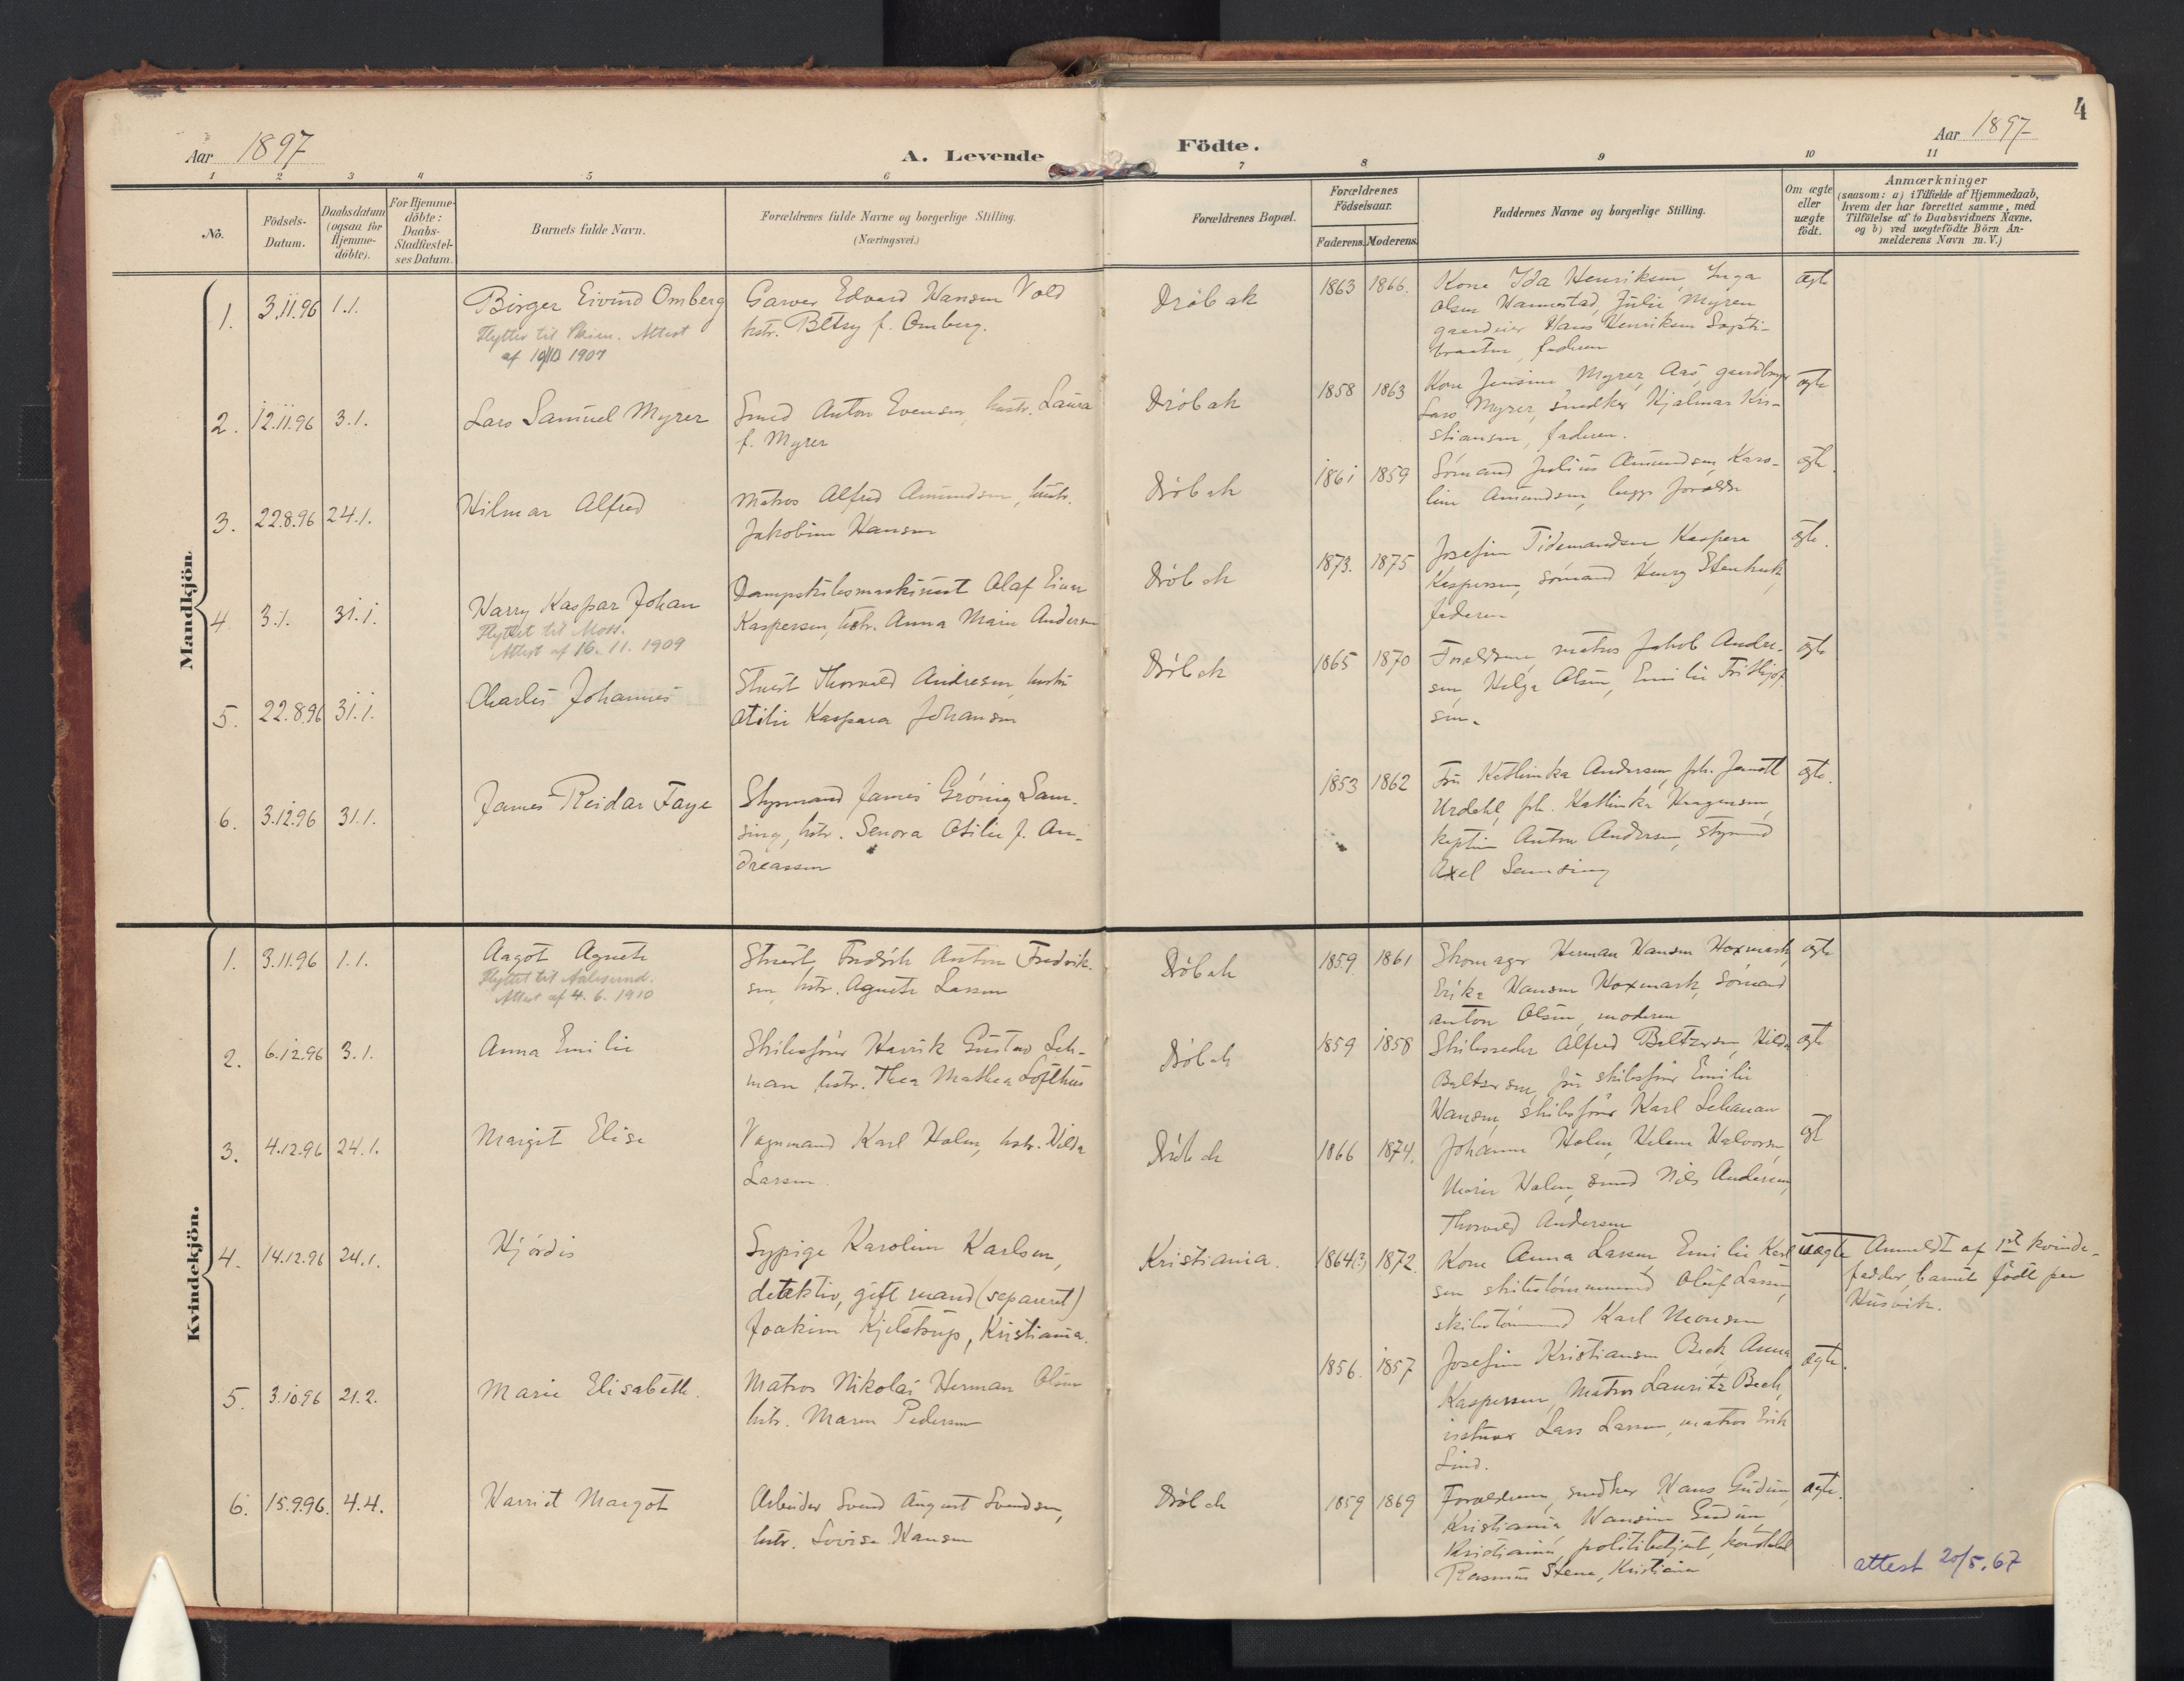 4
Aar 1897
A. Levende Födte.
Aar 1897
1 2 3 4 5 6 7 8 9 10 11
No.
Födsels-
Datum.
Daabsdatum
(ogsaa for
Hjemme-
döbte).
For Hjemme-
döbte:
Daabs-
Stadfæstel-
ses Datum.
Barnets fulde Navn.
Forældrenes fulde Navne og borgerlige Stilling.
(Næringsvei.)
Forældrenes Bopæl.
Forældrenes
Födselsaar.
Faderens. Moderens.
Faddernes Navne og borgerlige Stilling.
Om ægte
eller
uægte
födt.
Anmærkninger
(saasom: a) i Tilfælde af Hjemmedaab,
hvem der har forrettet samme, med
Tilföielse af to Daabsvidners Navne,
og b) ved uægtefödte Börn An-
melderens Navn m. V.)
Mandkjön.
1. 3.11.96 1.1.
Birger Eivind Omberg
Flytter til Skien. Attest
af 1907
Garver Edvard Hansen Vold
hstr. Betsy f. Omberg.
Dröbak
1863 1866.
Kone Ida Henriksen, Inga
Olsen Hannestad, Julie Myren
gaardeier Hans Henriksen
faderen
ægte
2. 12.11.96 3.1.
Lars Samuel Myrer
Smed Anton Evensen, hustr. Laura
f. Myrer
Dröbak
1858 1863
Kone Jensine Myrer, Aas, gaardbruger
Lars Myrer, snedker Hjalmar Kri-
stiansen, faderen.
ægte
3. 22.8.96 24.1.
Hilmar Alfred
Matros Alfred Amundsen, hustr.
Jakobine Hansen
Dröbak
1861 1859
Sömand Julius Amundsen, Karo-
line Amundsen, begge forældre
ægte.
4. 3.1. 31.1.
Harry Kaspar Johan
Flyttet til Moss.
Attest af 16.11.1909
Dampskibsmaskinist Olaf Einar
Kaspersen, hstr. Anna Marie Andersen
Dröbak
1873. 1875
Josefine Tidemandsen, Kaspara
Kaspersen, sömand Henry Stenbuk,
faderen
ægte.
5. 22.8.96 31.1.
Charles Johannes
Stuert Thorvald Andresen, hustr
Otilie Kaspara Johansen
Dröbak
1865 1870
Forældrene, matros Jakob Ander-
sen, Helga Olsen, Emilie Frithjof-
sen.
ægte
6. 3.12.96 31.1.
James Reidar Faye
Styrmand James Gröning Sam-
sing, hstr. Senora Otilie f. An-
dreassen
1853 1862
Fru Kathinka Andersen, frk.
Urdahl, frk. Kathinka Haagensen,
kaptein Anton Andersen, styrmand
Axel Samsing
ægte.
Kvindekjön.
1. 3.11.96 1.1.
Aagot Agnete
Flyttet til Aalesund.
Attest af 4.6.1910
Stuert Fredrik Anton Fredrik-
sen, hstr. Agnete Larsen
Dröbak
1859 1861
Skomager Herman Hansen Hoxmark,
Erika Hansen Hoxmark, sömand
Anton Olsen, moderen
ægte
2. 6.12.96 3.1.
Anna Emilie
Skibsförer Henrik Gustav Leh-
man hstr. Thea Mathea Lofthus
Dröbak
1859 1858
Skibsreder Alfred Beltzersen, Hilda
Beltzersen, fru skibsförer Emilie
Hansen, skibsförer Karl Lehman
ægte
3. 4.12.96 24.1.
Margit Elise
Vognmand Karl Holm, hstr. Hilda
Larsen.
Dröbak
1866 1874.
Johanne Holm, Helene Halvorsen,
Marie Holm, smed Nils Andersen,
Thorvald Andersen
ægt
4. 14.12.96 24.1.
Hjördis
Sypige Karoline Karlsen,
detektiv, gift mand (separeret)
Joakim Kjelstrup, Kristiania.
Kristiania.
1864(?) 1872.
Kone Anna Larsen, Emilie Karl-
sen skibstömmermand Oluf Larsen,
skibstömmermand Karl Monsen
uægte
Anmeldt af 1ste kvinde-
fadder, barnet födt paa
Husvik.
5. 3.10.96 21.2.
Marie Elisabeth.
Matros Nikolai Herman Olsen
hstr. Maren Pedersen
1856. 1857
Josefine Kristiansen Bech, Anna
Kaspersen, Matros Lauritz Bech,
Lars Larsen, matros Erik
Lind.
ægte.
6. 15.9.96. 4.4.
Harriet Margot
Arbeider Svend August Svendsen,
hstr. Lovise Hansen
Dröbak
1859 1869
Forældrene, snedker Hans Gudim,
Kristiania, Hansine Gudim,
Kristiania, politibetjent, konstabel
Rasmus Stene, Kristiania
ægte.
attest 20/5.67